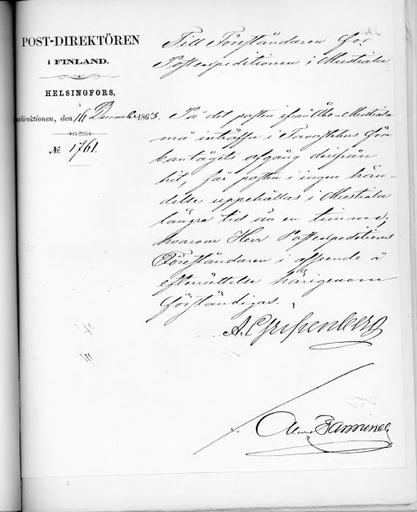 POST-DIREKTÖREN
I FINLAND.
HELSINGFORS,
direktionen, den 16 December 1863.
№ 1761.
Till Föreståndaren för
Postexpeditionen i Mustiala
På det posten ifrån Åbo-Mustiala
må inträffa i Tavastehus före
bantågets afgång derifrån
hit, får posten i ingen hän-
delse uppehållas i Mustiala
längre tid än en timme;
hvarom Herr Postexpeditions
Föreståndaren i afseende å
efterrättelse härigenom
förständigas.
A. Gripenberg